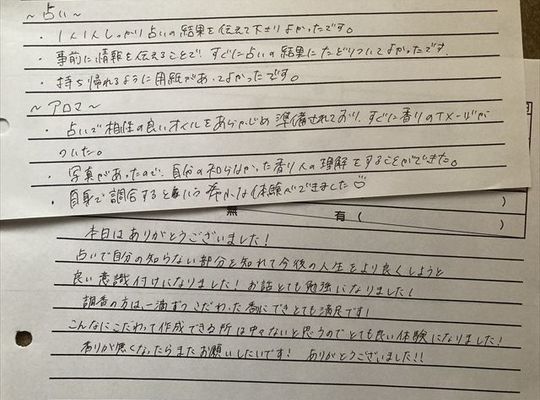 ～占い～
・1人1人しっかり占いの結果を伝えて下さりよかったです。
・事前に情報を伝えることで、すぐに占いの結果にたどりついてよかったです。
・持ち帰れるように用紙があってよかったです。
～アロマ～
・占いで相性の良いオイルをあらかじめ準備されており、すぐに香りのイメージが
ついた。
・写真があったので、自分の知らなかった香り人の理解をすることができた。
・自身で調合するという 体験ができました♡
)
無 有( )
本日はありがとうございました!
占いで自分の知らない部分を知れて今後の人生をより良くしようと
良い意識付けになりました! お話とても勉強になりました!
調香の方は、一滴ずつこだわった香にできとても満足です!
こんなにこだわって作成できる所は中々ないと思うのでとても良い体験になりました!
香りが無くなったらまたお願いしたいです! ありがとうございました!!